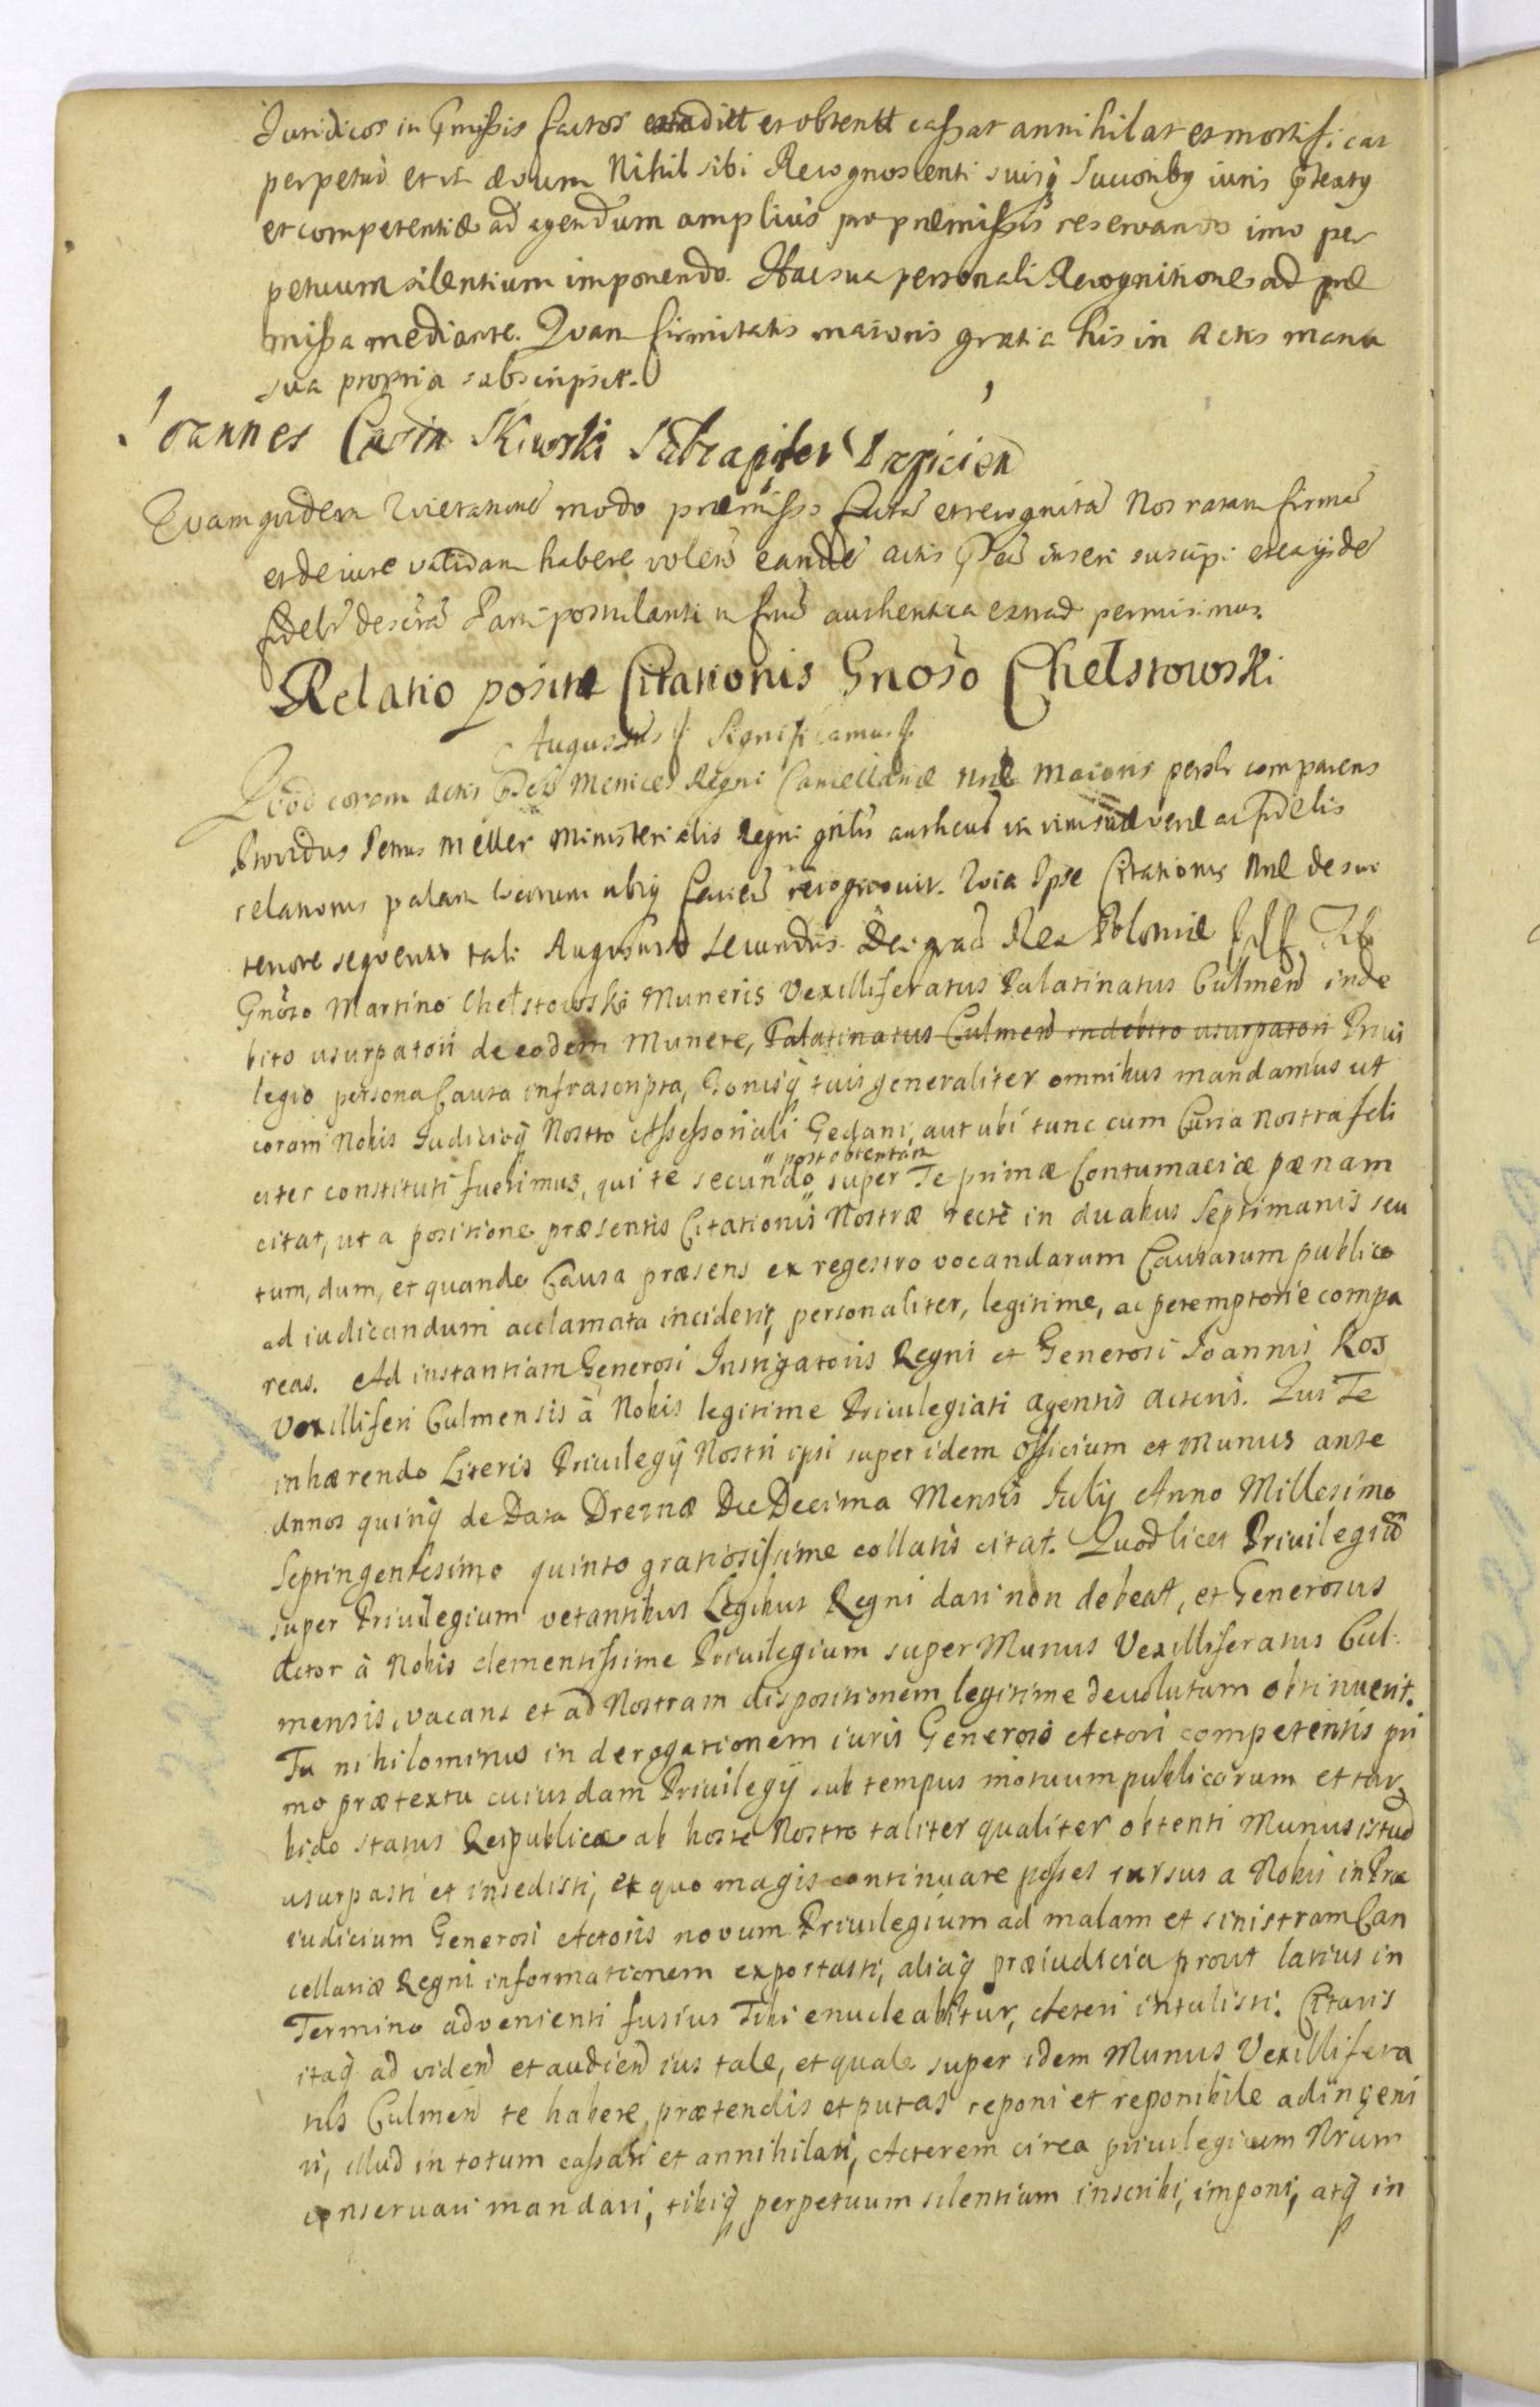 Juridicos in pmissis factos et obtent cassat annihilat et mortificat
perpetuo et in ævum Nihil sibi Recognoscenti suisq Succoribg iuris ptextg
et competentiæ ad agendum amplius pro præmissis reservando imo per
petuum silentium imponendo. Hac sua personali Recognitione ad præ
missa mediante. Quam firmitatis maioris gratia his in Actis manu
sua propria subscripsit.
Joannes
Quam quidem Quietationē modo præmisso factā et recognitā Nos ratam firmā
et de iure validam habere volen̄ eandē actis ptib inseri suscipi et ex ijsdē
fidelr descrā Parti postulanti in formā authentica extrad permisimus.
Relatio positæ Citationis Gnōso Chełstowski
Augustus Significamus
Quod coram Actis Metrices Regni Cancellariæ Nræ Maioris persolr comparens
Providus Petrus Meller Ministerialis Regni gnlis authcus in vim suæ veræ ac fidelis
relationis palam recognovit. Quia Ipse Citationis Nræ de suo
tenore sequentis tali Augustus Secundus Dei gra Rex Poloniæ Tibi
Gnōso Martino Chełstowski Muneris Vexilliferatus Palatinatus Culmen inde
bito usurpatori de eodem Munere, Palatinatus Culmen indebito usurpatori Privi
legio persona Causa infrascripta, bonisq tuis generaliter omnibus mandamus ut
coram Nobis Judicioq Nostro Assessoriali Gedani, aut ubi tunc cum Curia Nostra feli
citer constituti fuerimus, qui te secundo post obtentam super Te primæ Contumaciæ pænam
citat, ut a positione præsentis Citationis Nostræ recte in duabus Septimanis seu
tum, dum, et quando Causa præsens ex regestro vocandarum Causarum publice
ad iudicandum acclamata inciderit, personaliter, legitime, ac peremptorie compa
reas. Ad instantiam Generosi Instigatoris Regni et Generosi Joannis Kos
Vexilliferi Culmensis à Nobis legitime Privilegiati agentis Actoris. Qui Te
inhærendo Literis Privilegij Nostri ipsi super idem Officium et Munus ante
Annos quinq de Data Dreznæ Die Decima Mensis Julij Anno Millesimo
Septingentesimo quinto gratiosissime collatis citat. Quod licet Privilegiū
super Privilegium vetantibus Legibus Regni dari non debeat, et Generosus
Actor à Nobis clementissime Privilegium super Munus Vexilliferatus Cul-
mensis, vacans et ad Nostram dispositionem legitime devolutum obtinuerit.
Tu nihilominus in derogationem iuris Generoso Actori competentis pri
mo prætextu cuiusdam Privilegij sub tempus motuum publicorum et tur
bido status Reipublicæ ab hoste Nostro taliter qualiter obtenti Munus istud
usurpasti et insedisti, et quo magis continuare posses rursus a Nobis in Præ
iudicium Generosi Actoris novum Privilegium ad malam et sinistram Can
cellariæ Regni informationem exportasti, aliaq præiudicia prout latius in
Termino advenienti fusius Tibi enucleabitur, Actori intulisti. Citaris
itaq ad viden et audien ius tale, et quale super idem Munus Vexillifera
tus Culmen te habere prætendis et putas reponi et reponibile adinveni
ri, illud in totum cassari et annihilari, Actorem circa privilegium Nrum
conservari mandari, tibiq perpetuum silentium inscribi, imponi, atq in